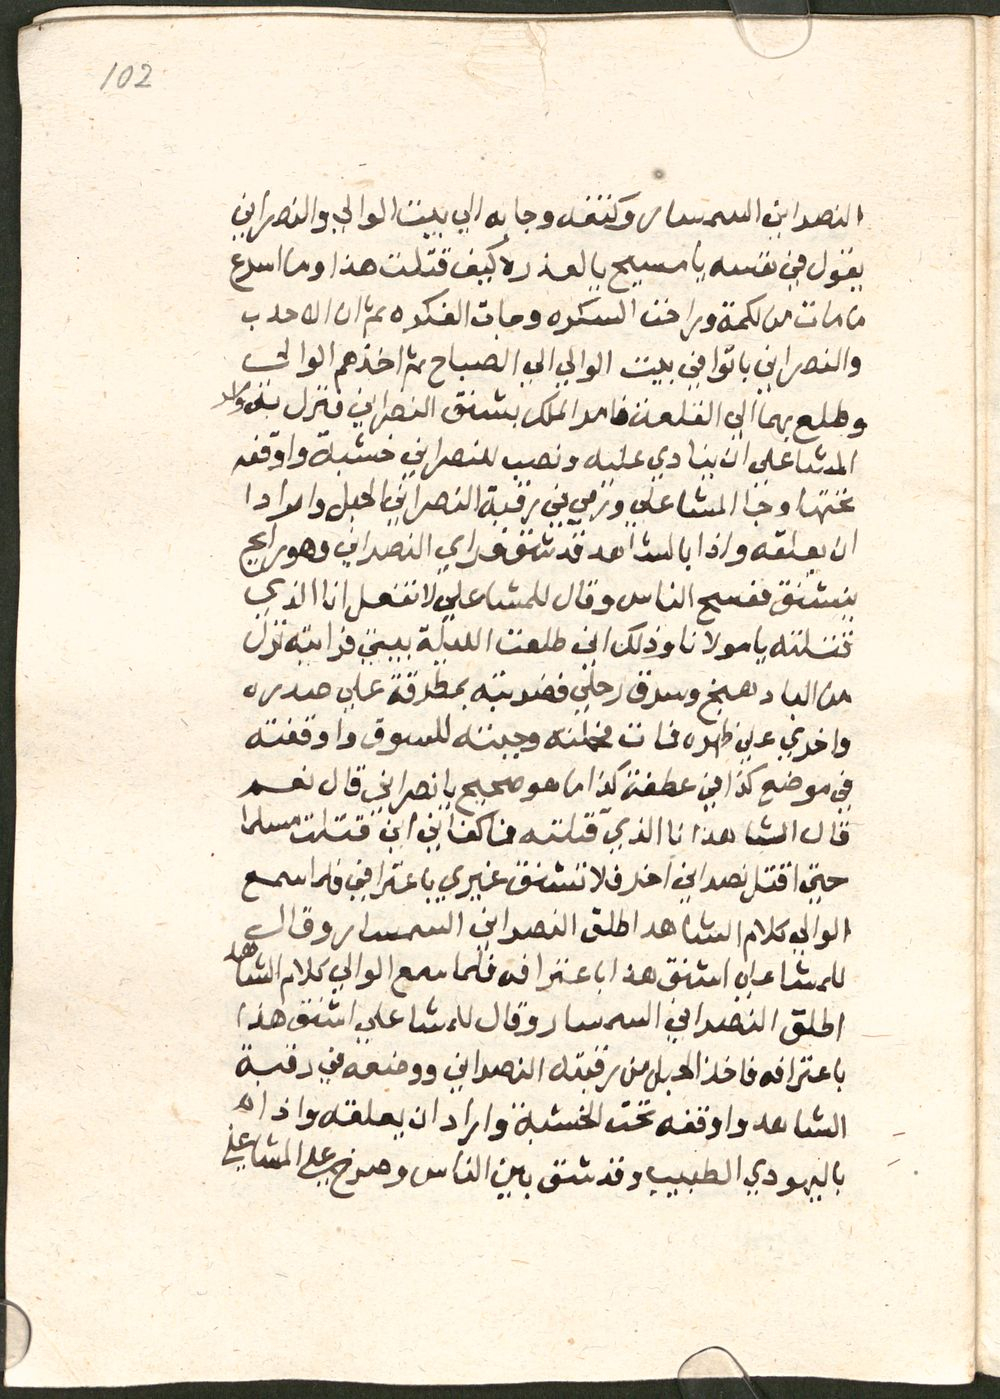 102
النصراني السمسار وكتفه وجابه الي بيت الوالي والنصراني
يقول في نفسه يا مسيح يا لعذره كيف قتلت هذا وما اسرع
ما مات من لكمة وراحت السكره وجات الفكره ثم ان الاحدب
والنصراني باتوا في بيت الوالي الي الصباح ثم اخذهم الوالي
وطلع بهما الي القلعة فامر الملك بشنق النصراني فنزل
المشاعلي ان ينادي عليه ونصب للنصراني خشبة واوقفه
تحتها وجا المشاعلي ورمي في رقبة النصراني الحبل وارادا
ان يعلقه واذا بالشاهد قد شق فراي النصراني وهو رايح
ينشنق ففسح الناس وقال للمشاعلي لا تفعل انا الذي
قتلته يا مولانا وذلك اني طلعت الليلة بيتي فرايته نزل
من البادهنج وسرق رحلي فضربته بمطرقة علي صدره
واخري علي ظهره فمات فحملته وجيته للسوق واوقفته
في موضع كذا في عطفة كذا ما هو صحيح يا نصراني قال نعم
قال الشاهد انا الذي قتلته ما كفاني اني قتلت مسلما
حتي اقتل نصراني اخر فلا تشنق غيري باعترافي فلما سمع
الوالي كلام الشاهد اطلق النصراني السمسار وقال
للمشاعلي اشنق هذا باعترافه فلما سمع الوالي كلام الشاهد
اطلق النصراني السمسار وقال للمشاعلي اشنق هذا
باعترافه فاخذ الحبل من رقبته النصراني ووضعه في رقبة
الشاهد واوقفه تحت الخشبة واراد ان يعلقه واذا
باليهودي الطبيب وقد شق بين الناس وصرخ علي المشاعلي